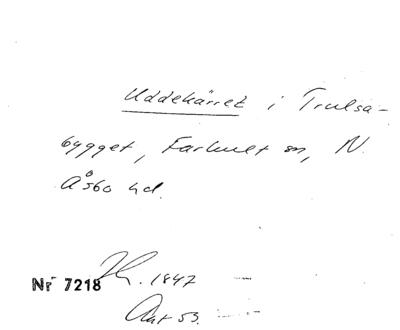 Uddekärret i Trulsa-
bygget, Farhult sn, N.
Åsbo hd.
Nr 7218
1847
Akt 53.